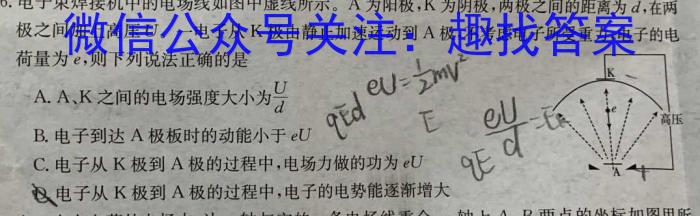 6. 电子束焊接机中的电场线如图中虚线所示。A 为阳极,K 为阴极,两极之间的距离为 d,在两
极之间加上高压 U,一电子从 K 极由静止加速运动到 A 极
微信公众号关注：趣找答案
电子的电
荷量为 e,则下列说法正确的是
A. A、K 之间的电场强度大小为U/d
B. 电子到达 A 极板时的动能小于 eU
C. 电子从 K 极到 A 极的过程中,电场力做的功为 eU
D. 电子从 K 极到 A 极的过程中,电子的电势能逐渐增大
qEd
eU=1/2mv²
E
eU/d
qE
K
e
高压
A